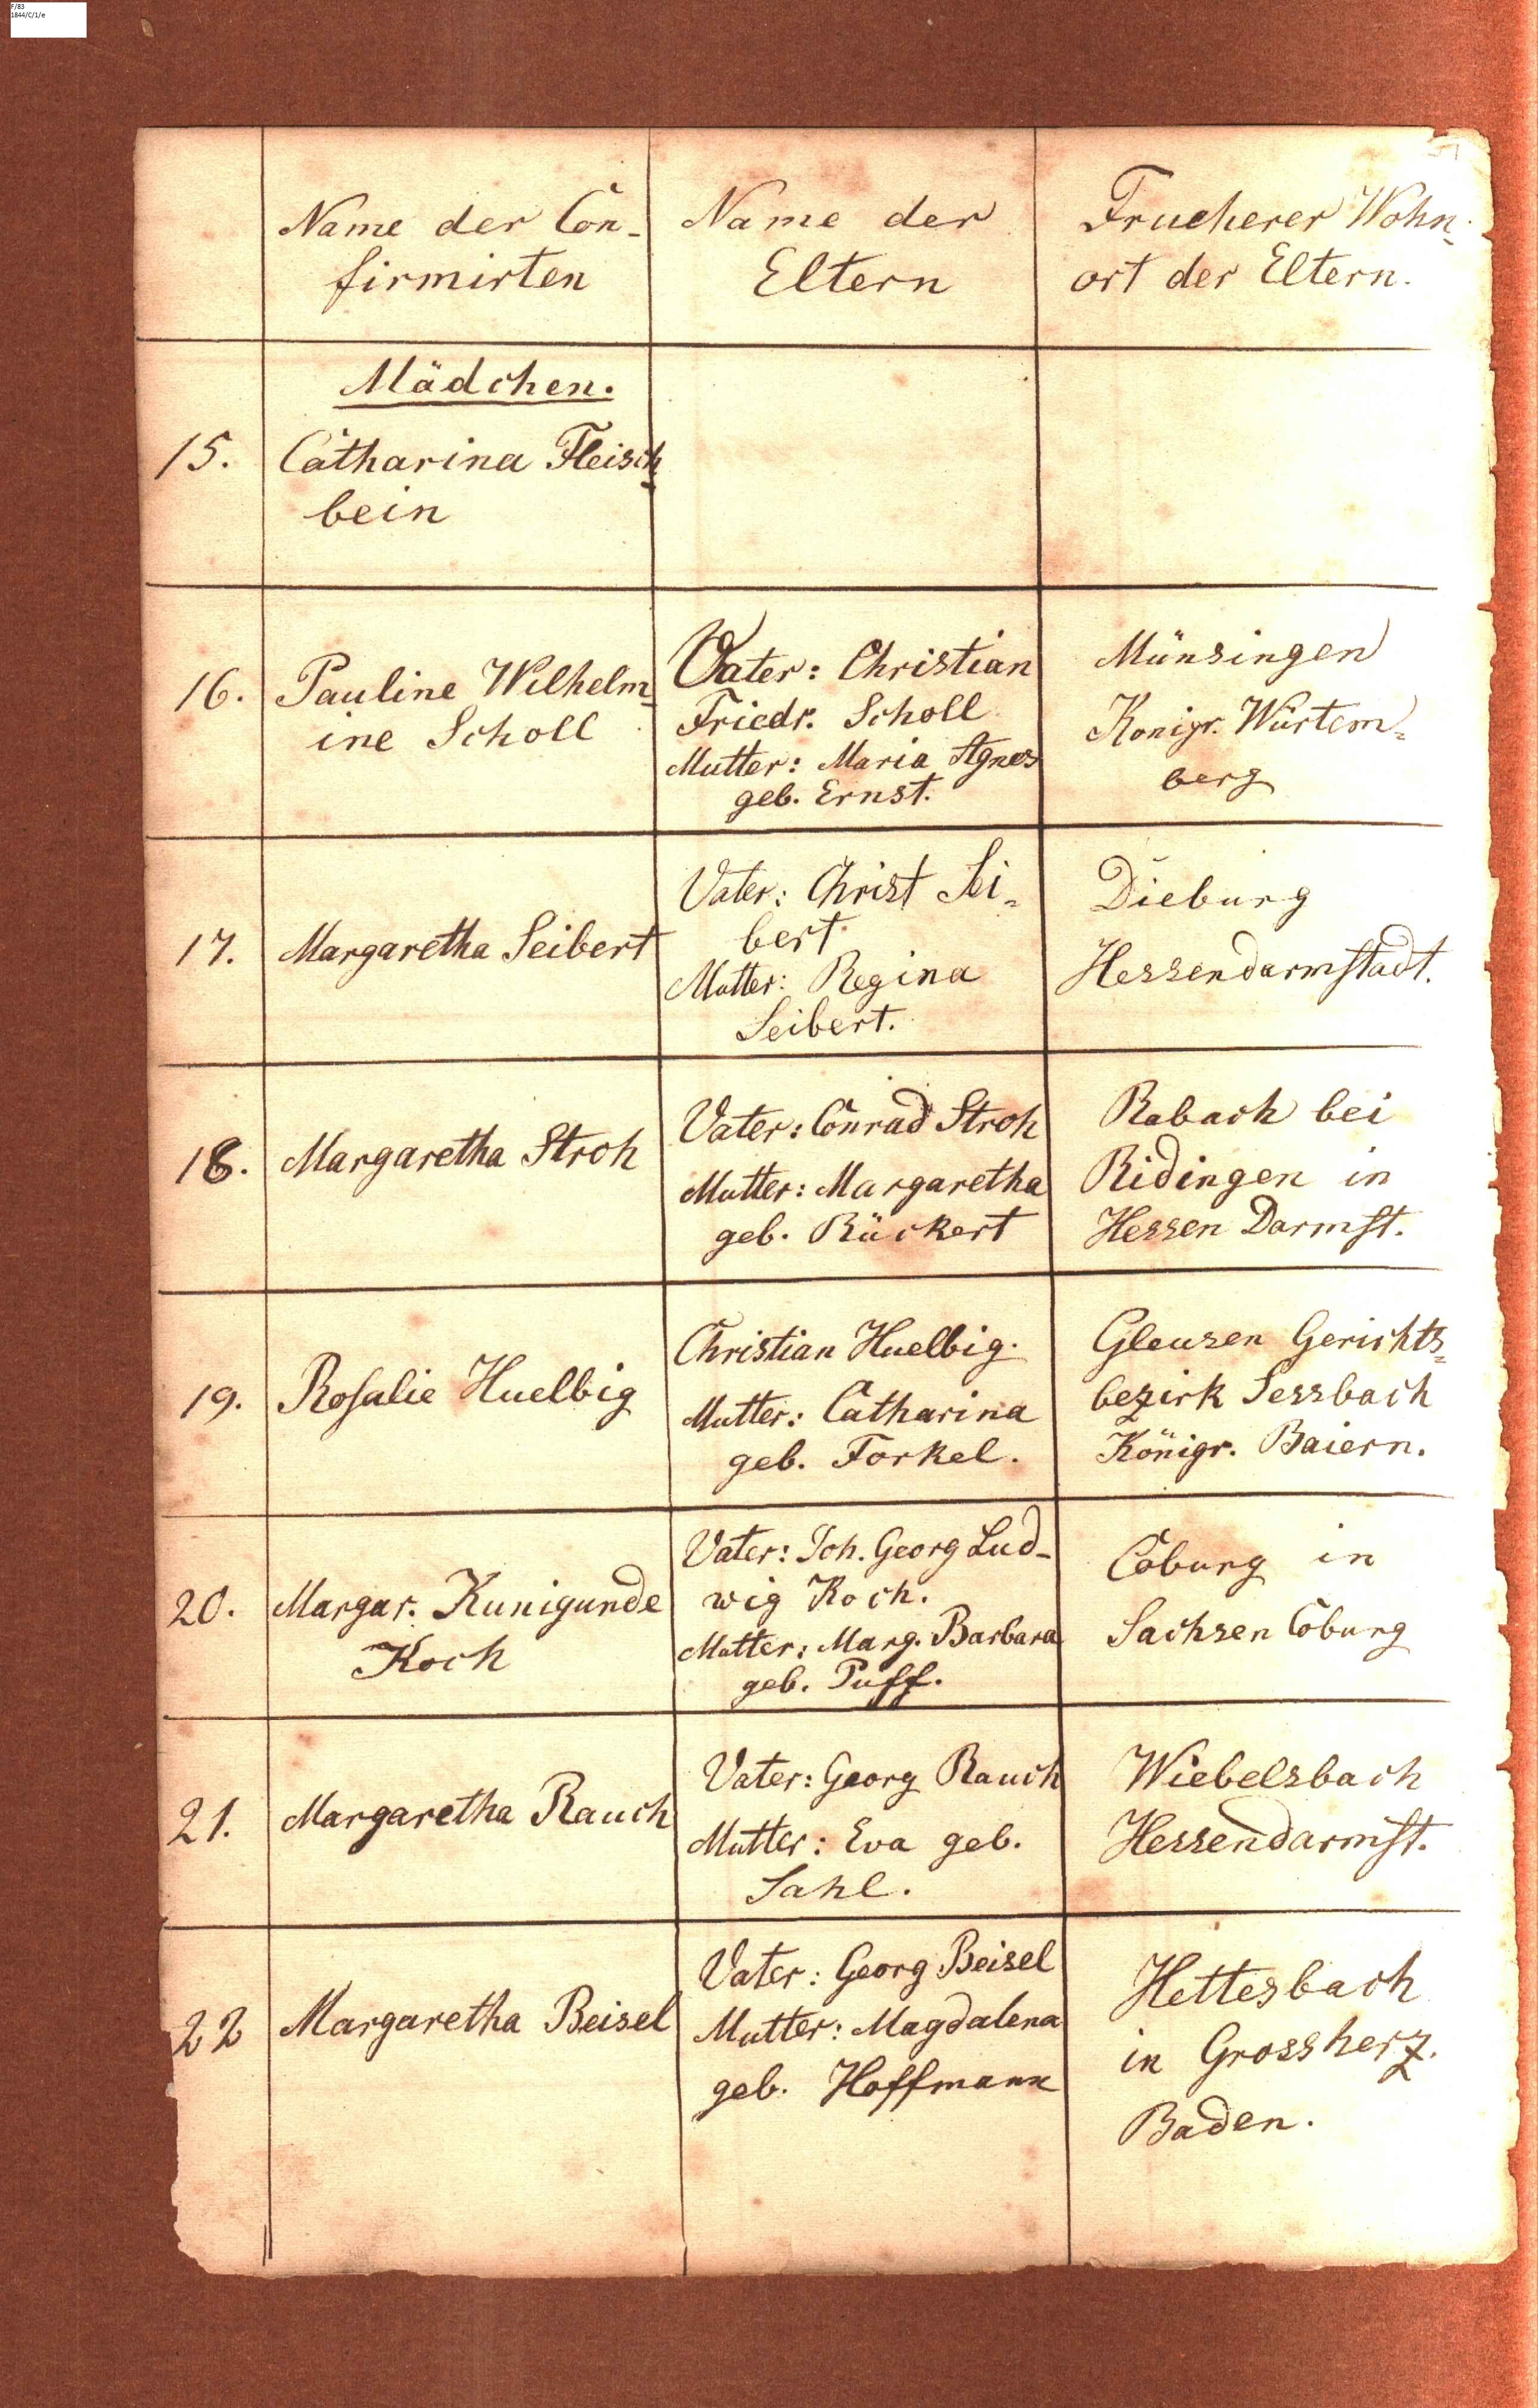 F/83
1844/C/1/e
Name der Con-
firmirten
Name der
Eltern
Frueherer Wohn-
ort der Eltern.
Mädchen.
15.
Catharina Fleisch-
bein
16.
Pauline Wilhelm-
ine Scholl
Vater: Christian
Friedr. Scholl
Mutter: Maria Agnes
geb. Ernst.
Münsingen
Konigr. Würtem=
berg
17.
Margaretha Seibert
Vater: Christ Sei=
bert.
Mutter: Regina
Seibert.
Dieburg
Hessendarmstadt.
18.
Margaretha Stroh
Vater: Conrad Stroh
Mutter: Margaretha
geb. Rückert
Robach bei
Ridingen in
Hessen Darmst.
19.
Rosalie Huelbig
Christian Huelbig.
Mutter: Catharina
geb. Forkel.
Gleusen Gerichts=
bezirk Sessbach
Königr. Baiern.
20.
Margar. Kunigunde
Koch
Vater: Joh. Georg Lud-
wig Koch.
Mutter: Marg. Barbara
geb. Puff.
Coburg in
Sachsen Coburg
21.
Margaretha Rauch
Vater: Georg Rauch
Mutter: Eva geb.
Sahl.
Wiebelsbach
Hessendarmst.
22
Margaretha Beisel
Vater: Georg Beisel
Mutter: Magdalena
geb. Hoffmann
Hettesbach
in Grossherz.
Baden.